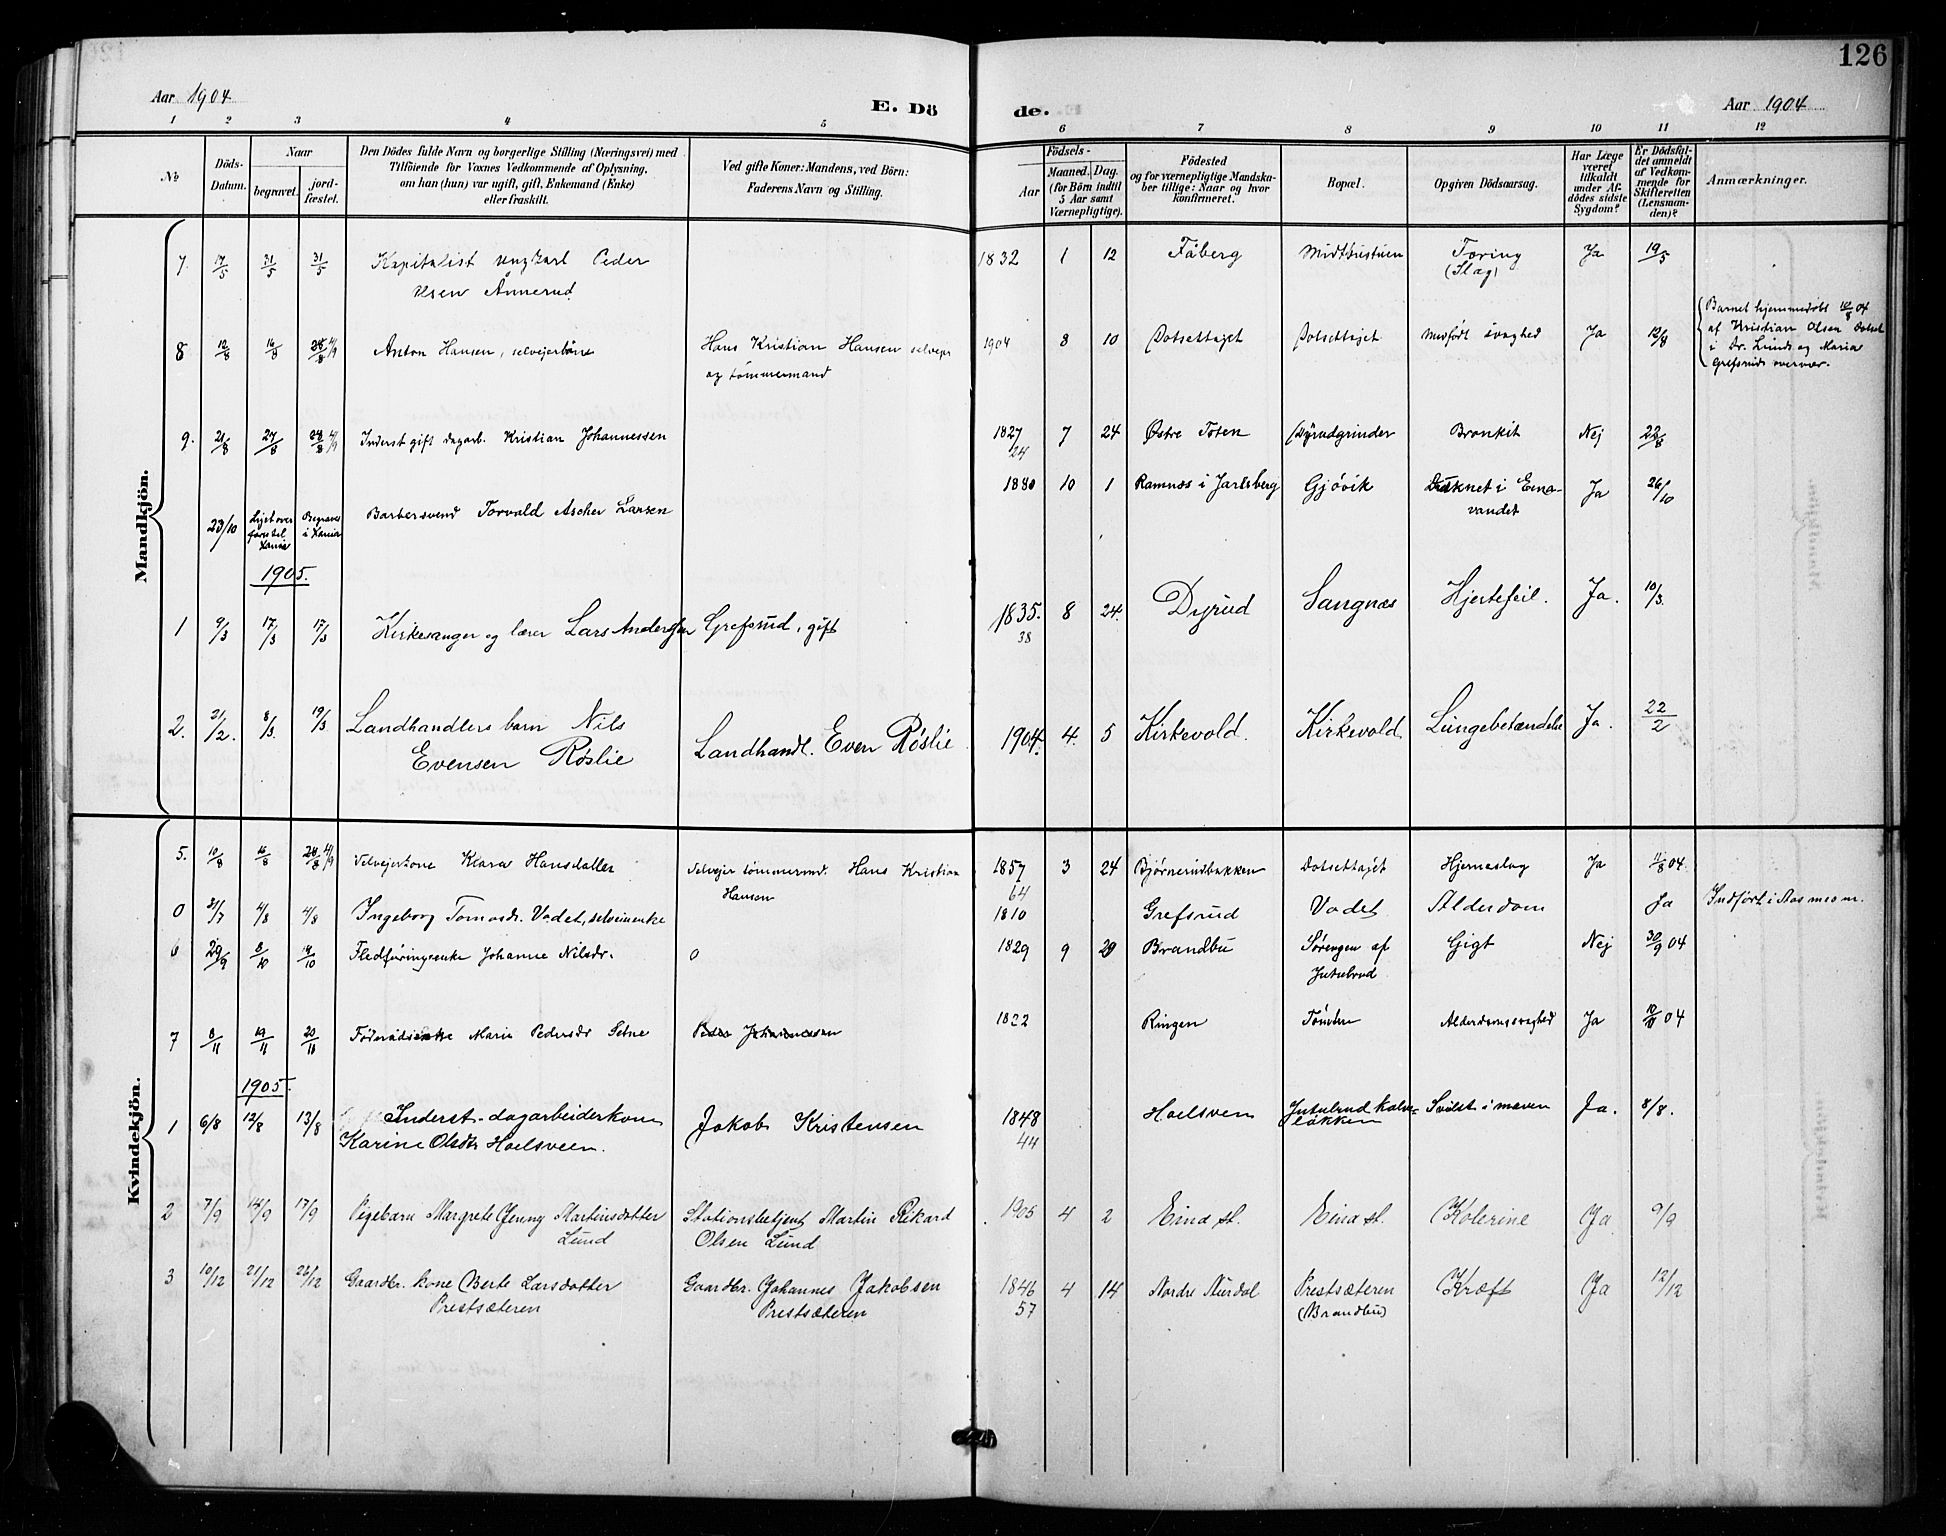 126
Aar 1904
E. Dö
de.
Aar 1904
1 2 3 4 5 6 7 8 9 10 11 12
No
Döds-
Datum.
Naar
begravet.
jord-
fæstet.
Den Dödes fulde Navn og borgerlige Stilling (Næringsvei) med
Tilföiende for Voxnes Vedkommende af Oplysning,
om han (hun) var ugift, gift, Enkemand (Enke)
eller fraskilt.
Ved gifte Koner: Mandens, ved Börn:
Faderens Navn og Stilling.
Födsels-
Aar
Maaned.
Dag.
(for Börn indtil
5 Aar samt
Værnepligtige).
Födested
og for værnepligtige Mandska-
ber tillige: Naar og hvor
konfirmeret.
Bopæl.
Opgiven Dödsaarsag.
Har Læge
været
tilkaldt
under Af-
dödes sidste
Sygdom?
Er Dödsfal-
det anmeldt
af Vedkom-
mende for
Skifteretten
(Lensman-
den)?
Anmærkninger.
Mandkjön.
7. 17/5 31/5 31/5 Kapitalist ungkarl Peder 1832 1 12 Fåberg Midthustuen Tæring Ja 19/5
Olsen Ånnerud (Slag)
8 12/8 16/8 28/8 4/9 Anton Hansen, selveierbarn Hans Kristian Hansen selveier 1904 8 10 Dotsethaget Dotsethaget Medfödt svaghed Ja 12/8
og tömmermand
Barnet hjemmedöbt 10/8 04
af Kristian Olsen Dotset
i Dr. Lunds og Maria
Grefsruds overvær.
9. 21/8 27/8 28/8 4/9 Inderst gift dagarb. Kristian Johannessen 1827 7 24 Østre Toten Dyrudgrinder Bronkit Nej 22/8
24
23/10 Liget over
føres til
Xania
Begraves
i Xania
Barbersvend Torvald Ascher Larsen 1880 10 1 Ramnæs i Jarlsberg Gjövik Druknet i Eina- Ja 26/10
vandet
1905.
1 9/3 17/3 17/3 Kirkesanger og lærer Lars Andersen Grefsrud, gift 1835. 8 24. Dyrud Sangnæs Hjertefeil. Ja. 10/3.
38
2. 21/2. 8/3. 19/3 Landhandlers barn Nils Landhandl. Even Røslie 1904. 4. 5 Kirkevold. Kirkevold Lungebetændelse Ja. 22/2
Evensen Røslie
Kvindekjön.
5. 10/8 16/8 28/8 4/9 Selveierkone Klara Hansdatter Selveier tömmermd. Hans Kristian 1857 3 24 Bjørnerudbakken Dotsethaget Hjerneslag Ja 11/8 04
Hansen 64
0 31/7 4/8 4/8 Ingeborg Tomasdr. Vadet, selveierenke 1810 Grefsrud Vadet Alderdom Ja Indført i Aas m. o. m.
6 29/9 8/10 14/10 Fledføringsenke Johanne Nilsdr. 0 1829 9 20 Brandbu Sørengen af Gigt Nej 30/9 04
Jutulrud
7 8/11 19/11 20/11 Føderådsenke Marie Pedersdr Setne Peder Johannessen 1822 Ringen Tömten Alderdomssvaghed Ja 10/11 04
1905.
1 6/8 12/8 13/8 Inderst-dagarbeiderkone Jakob Kristensen 1848 Hoelsven Jutulrud kalve- Svulst i maven Ja. 8/8.
Karine Olsdtr Hoelsveen. 44 løkken
2 7/9 14/9 17/9 Pigebarn Margrete Jenny Martinsdatter Stationsbetjent Martin Rikard 1905 4 2 Eina st. Eina st. Kolerine Ja 9/9
Lund Olsen Lund
3 10/12 21/12 22/12 Gaardbr. kone Berte Larsdatter Gaardbr. Johannes Jakobsen 1846 4 14 Nordre Aurdal Prestsæteren Kræft Ja 12/12
Prestsæteren Prestsæteren 57 (Brandbu)